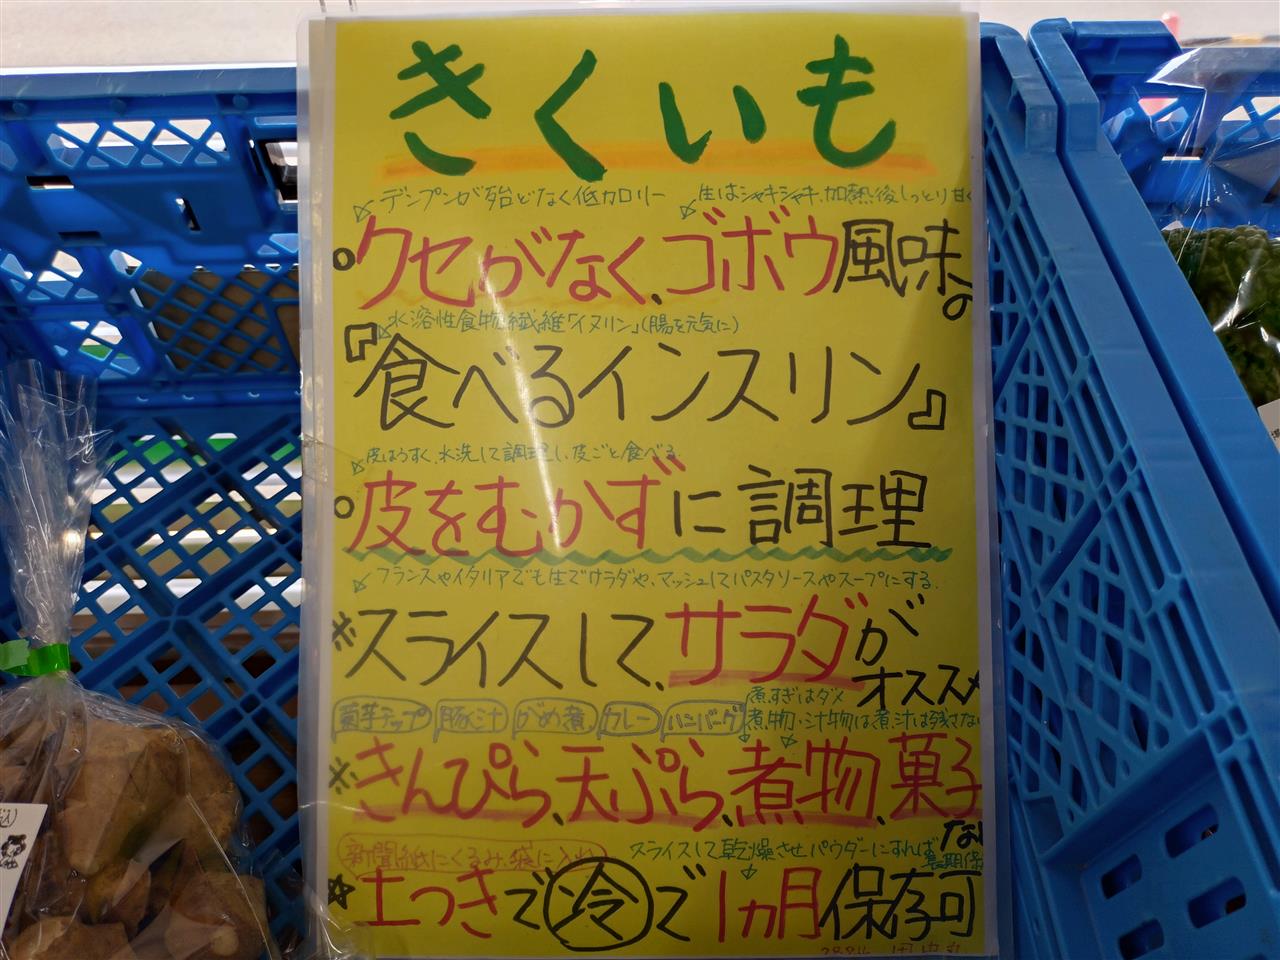 きくいも
デンプンが殆どなく低カロリー 生はシャキシャキ、加熱後しっとり甘く
○クセがなく、ゴボウ風味の
水溶性食物繊維「イヌリン」(腸を元気に)
『食べるインスリン』
皮はうすく、水洗して調理し、皮ごと食べる。
○皮をむかずに調理
フランスやイタリアでも生でサラダや、マッシュしてパスタソースやスープにする。
※スライスして、サラダがオススメ
菊芋チップ 豚汁 がめ煮 カレー ハンバーグ
煮すぎはダメ
煮物・汁物は煮汁は残さない
※きんぴら、天ぷら、煮物、菓子
など
新聞紙にくるみ、袋に入れ スライスして乾燥させパウダーにすれば長期保
☆土つきで冷で1ヵ月保存可